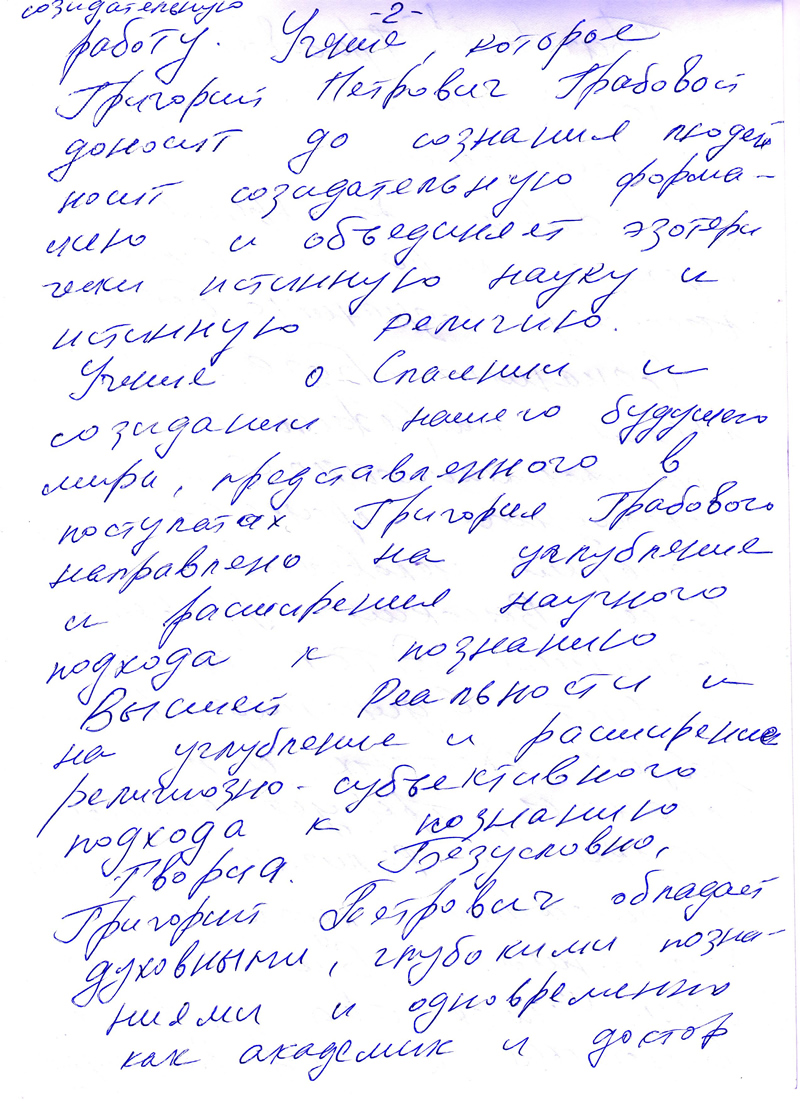 созидательную
-2-
работу. Учение, которое
Григорий Петрович Грабовой
доносит до сознания людей
носит созидательную форма-
цию и объединяет эзотери
чески истинную науку и
истинную религию.
Учение о Спасении и
созидании нашего будущего
мира, представленного в
постулатах Григория Грабового
направлено на углубление
и расширения научного
подхода к познанию
Высшей Реальности и
на углубление и расширение
религиозно-субъективного
подхода к познанию
Творца. Безусловно,
Григорий Петрович обладает
духовными, глубокими позна-
ниями и одновременно
как академик и доктор